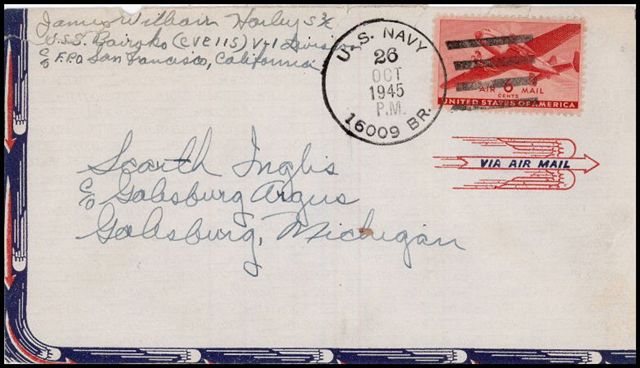 James William Harley S 2/c
U.S.S. Bairoko (CVE 115) V-1 Division
c/o F.P.O. San Francisco, California
U.S. NAVY
26
OCT
1945
P.M.
16009 BR.
AIR 6 MAIL
CENTS
UNITED STATES OF AMERICA
VIA AIR MAIL
Scarth Inglis
c/o Galesburg Argus
Galesburg, Michigan